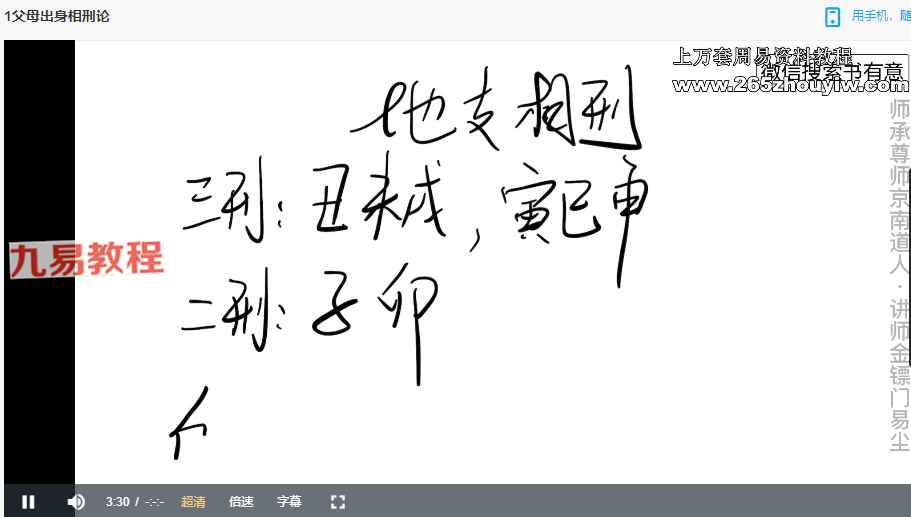 1父母出身相刑论
用手机，随
上万套周易资料教程
微信搜索书有意
www.265zhouyiw.com
地支相刑
三刑：丑未戌，寅巳申
九易教程
二刑：子卯
亻
师承尊师京南道人·讲师金镖门易尘
3:30 / -:-:-
超清
倍速
字幕